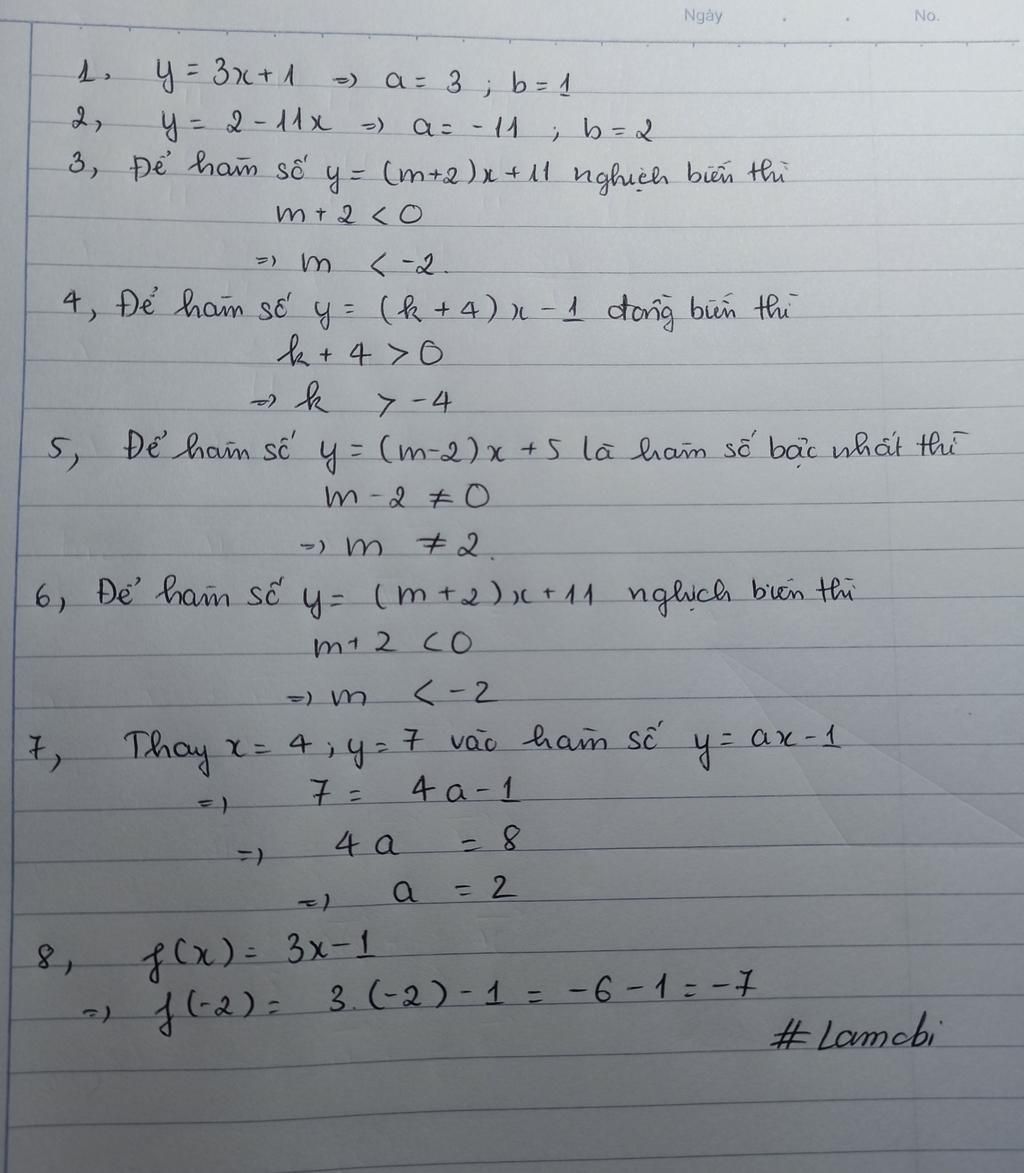 Ngày . . No.
1, y = 3x+1 => a = 3 ; b = 1
2, y = 2 - 11x => a = -11 ; b = 2
3, Để hàm số y = (m+2)x + 11 nghịch biến thì
m + 2 < 0
=> m < -2.
4, Để hàm số y = (k + 4) x - 1 đồng biến thì
k + 4 > 0
=> k > -4
5, Để hàm số y = (m-2)x + 5 là hàm số bậc nhất thì
m - 2 ≠ 0
=> m ≠ 2.
6, Để hàm số y = (m+2)x + 11 nghịch biến thì
m + 2 < 0
=> m < -2
7, Thay x = 4 ; y = 7 vào hàm số y = ax - 1
=> 7 = 4a - 1
=> 4a = 8
=> a = 2
8, f(x) = 3x - 1
=> f(-2) = 3.(-2) - 1 = -6 - 1 = -7
#Lamcbi